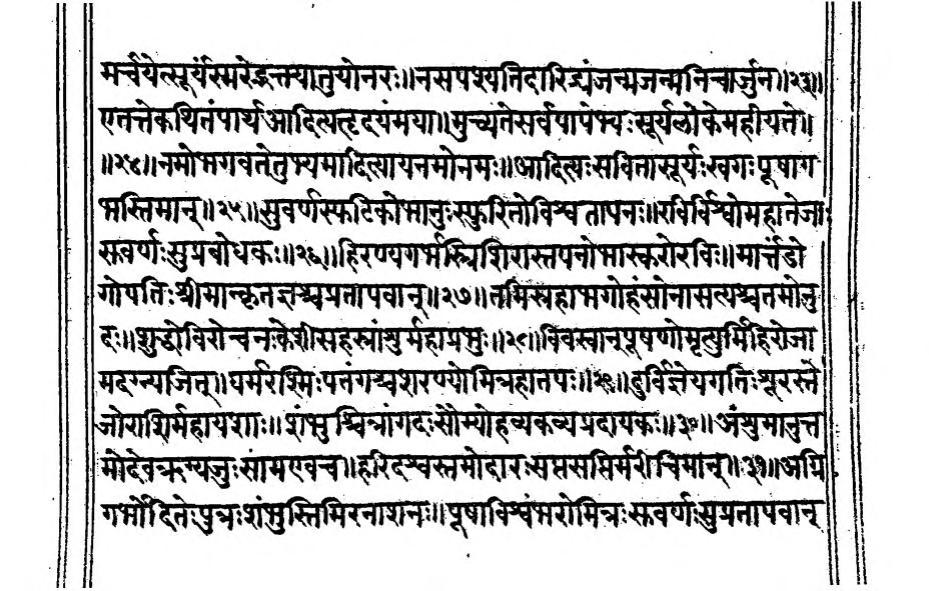 मर्चयेत्सूर्यंस्मरेद्भक्त्यातुयोनरः॥नसपश्येतिदारिद्र्यंजन्मजन्मनिचार्जुन॥२३॥
एतत्तेकथितंपार्थआदित्यहृदयंमया॥मुच्यतेसर्वपापेभ्यःसूर्यलोकेमहीयते॥
॥२४॥नमोभगवतेतुभ्यमादित्यायनमोनमः॥आदित्यःसवितासूर्यःखगःपूषाग
भस्तिमान्॥२५॥सुवर्णस्फटिकोभानुःस्फुरितोविश्वतापनः॥रविर्विश्वोमहातेजाः
सवर्णःसुप्रबोधकः॥२६॥हिरण्यगर्भस्त्रिशिरास्तपनोभास्करोरविः॥मार्त्तंडो
गोपतिःश्रीमान्कृतज्ञश्चप्रतापवान्॥२७॥तमिस्रहाभगोहंसोनासत्यश्चतमोनु
दः॥शुद्धोविरोचनःकेशीसहस्रांशुर्महाप्रभुः॥२८॥विवस्वान्पूषणोमृत्युर्मिहिरोजा
मदग्न्यजित्॥घर्मरश्मिःपतंगश्चशरण्योमित्रहातपः॥२९॥दुर्विज्ञेयगतिःशूरस्ते
जोराशिर्महायशाः॥शंभुश्चित्रांगदःसौम्योहव्यकव्यप्रदायकः॥३०॥अंशुमानुत्त
मोदेवऋग्यजुःसामएवच॥हरिदश्वस्तमोदारःसप्तसप्तिर्मरीचिमान्॥३१॥अग्नि
गर्भोदितेःपुत्रःशंभुस्तिमिरनाशनः॥पूषाविश्वंभरोमित्रःसवर्णःसुप्रतापवान्